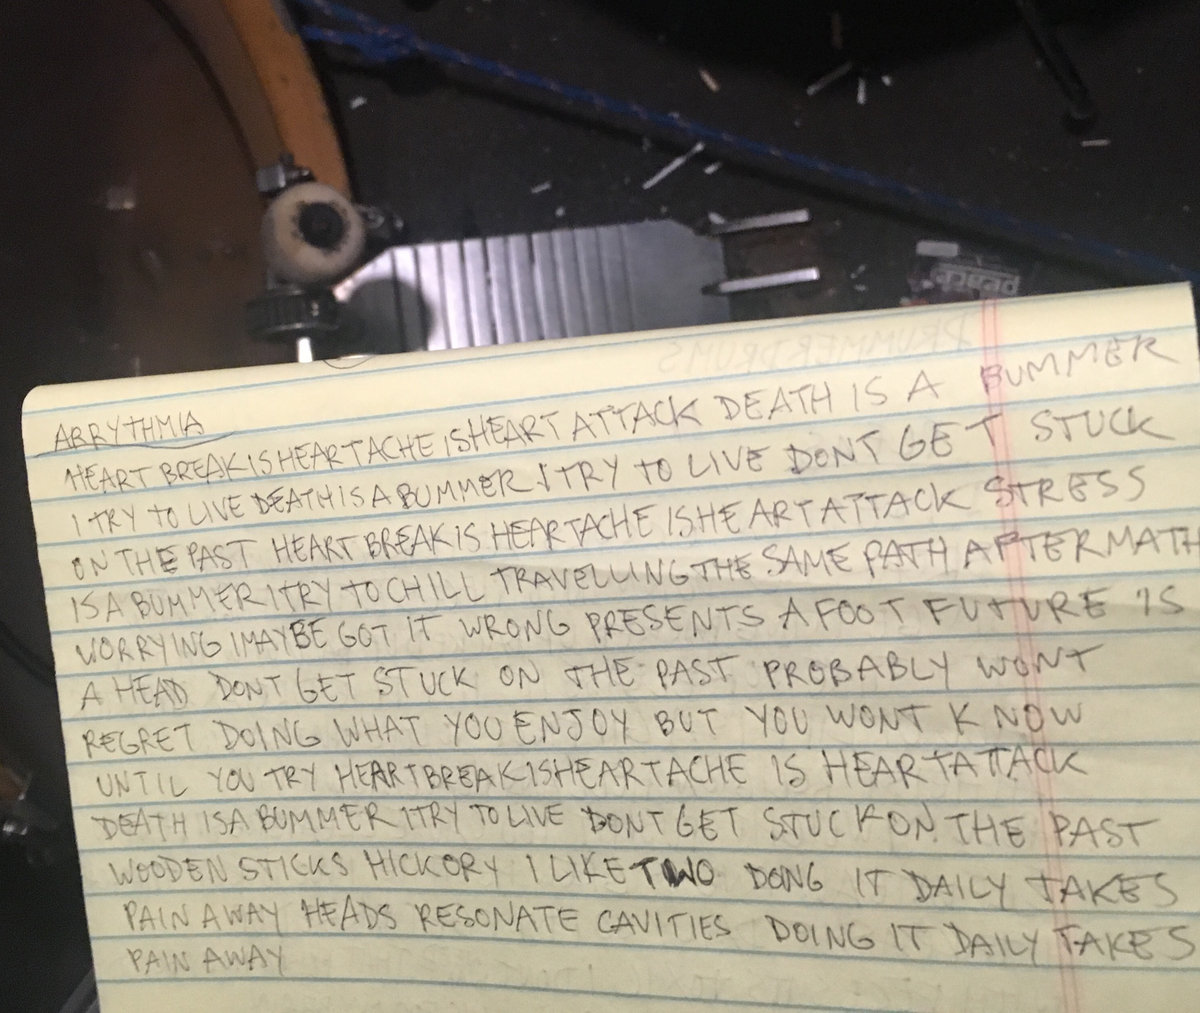 DRUMMER DRUMS
ARRYTHMIA
HEART BREAK IS HEARTACHE IS HEART ATTACK DEATH IS A BUMMER
I TRY TO LIVE DEATH IS A BUMMER I TRY TO LIVE DONT GET STUCK
ON THE PAST HEART BREAK IS HEARTACHE IS HEART ATTACK STRESS
IS A BUMMER I TRY TO CHILL TRAVELLING THE SAME PATH AFTERMATH
WORRYING I MAYBE GOT IT WRONG PRESENTS A FOOT FUTURE IS
A HEAD DONT GET STUCK ON THE PAST PROBABLY WONT
REGRET DOING WHAT YOU ENJOY BUT YOU WONT KNOW
UNTIL YOU TRY HEARTBREAK IS HEARTACHE IS HEARTATTACK
DEATH IS A BUMMER I TRY TO LIVE DONT GET STUCK ON THE PAST
WOODEN STICKS HICKORY I LIKE TWO DOING IT DAILY TAKES
PAIN AWAY HEADS RESONATE CAVITIES DOING IT DAILY TAKES
PAIN AWAY